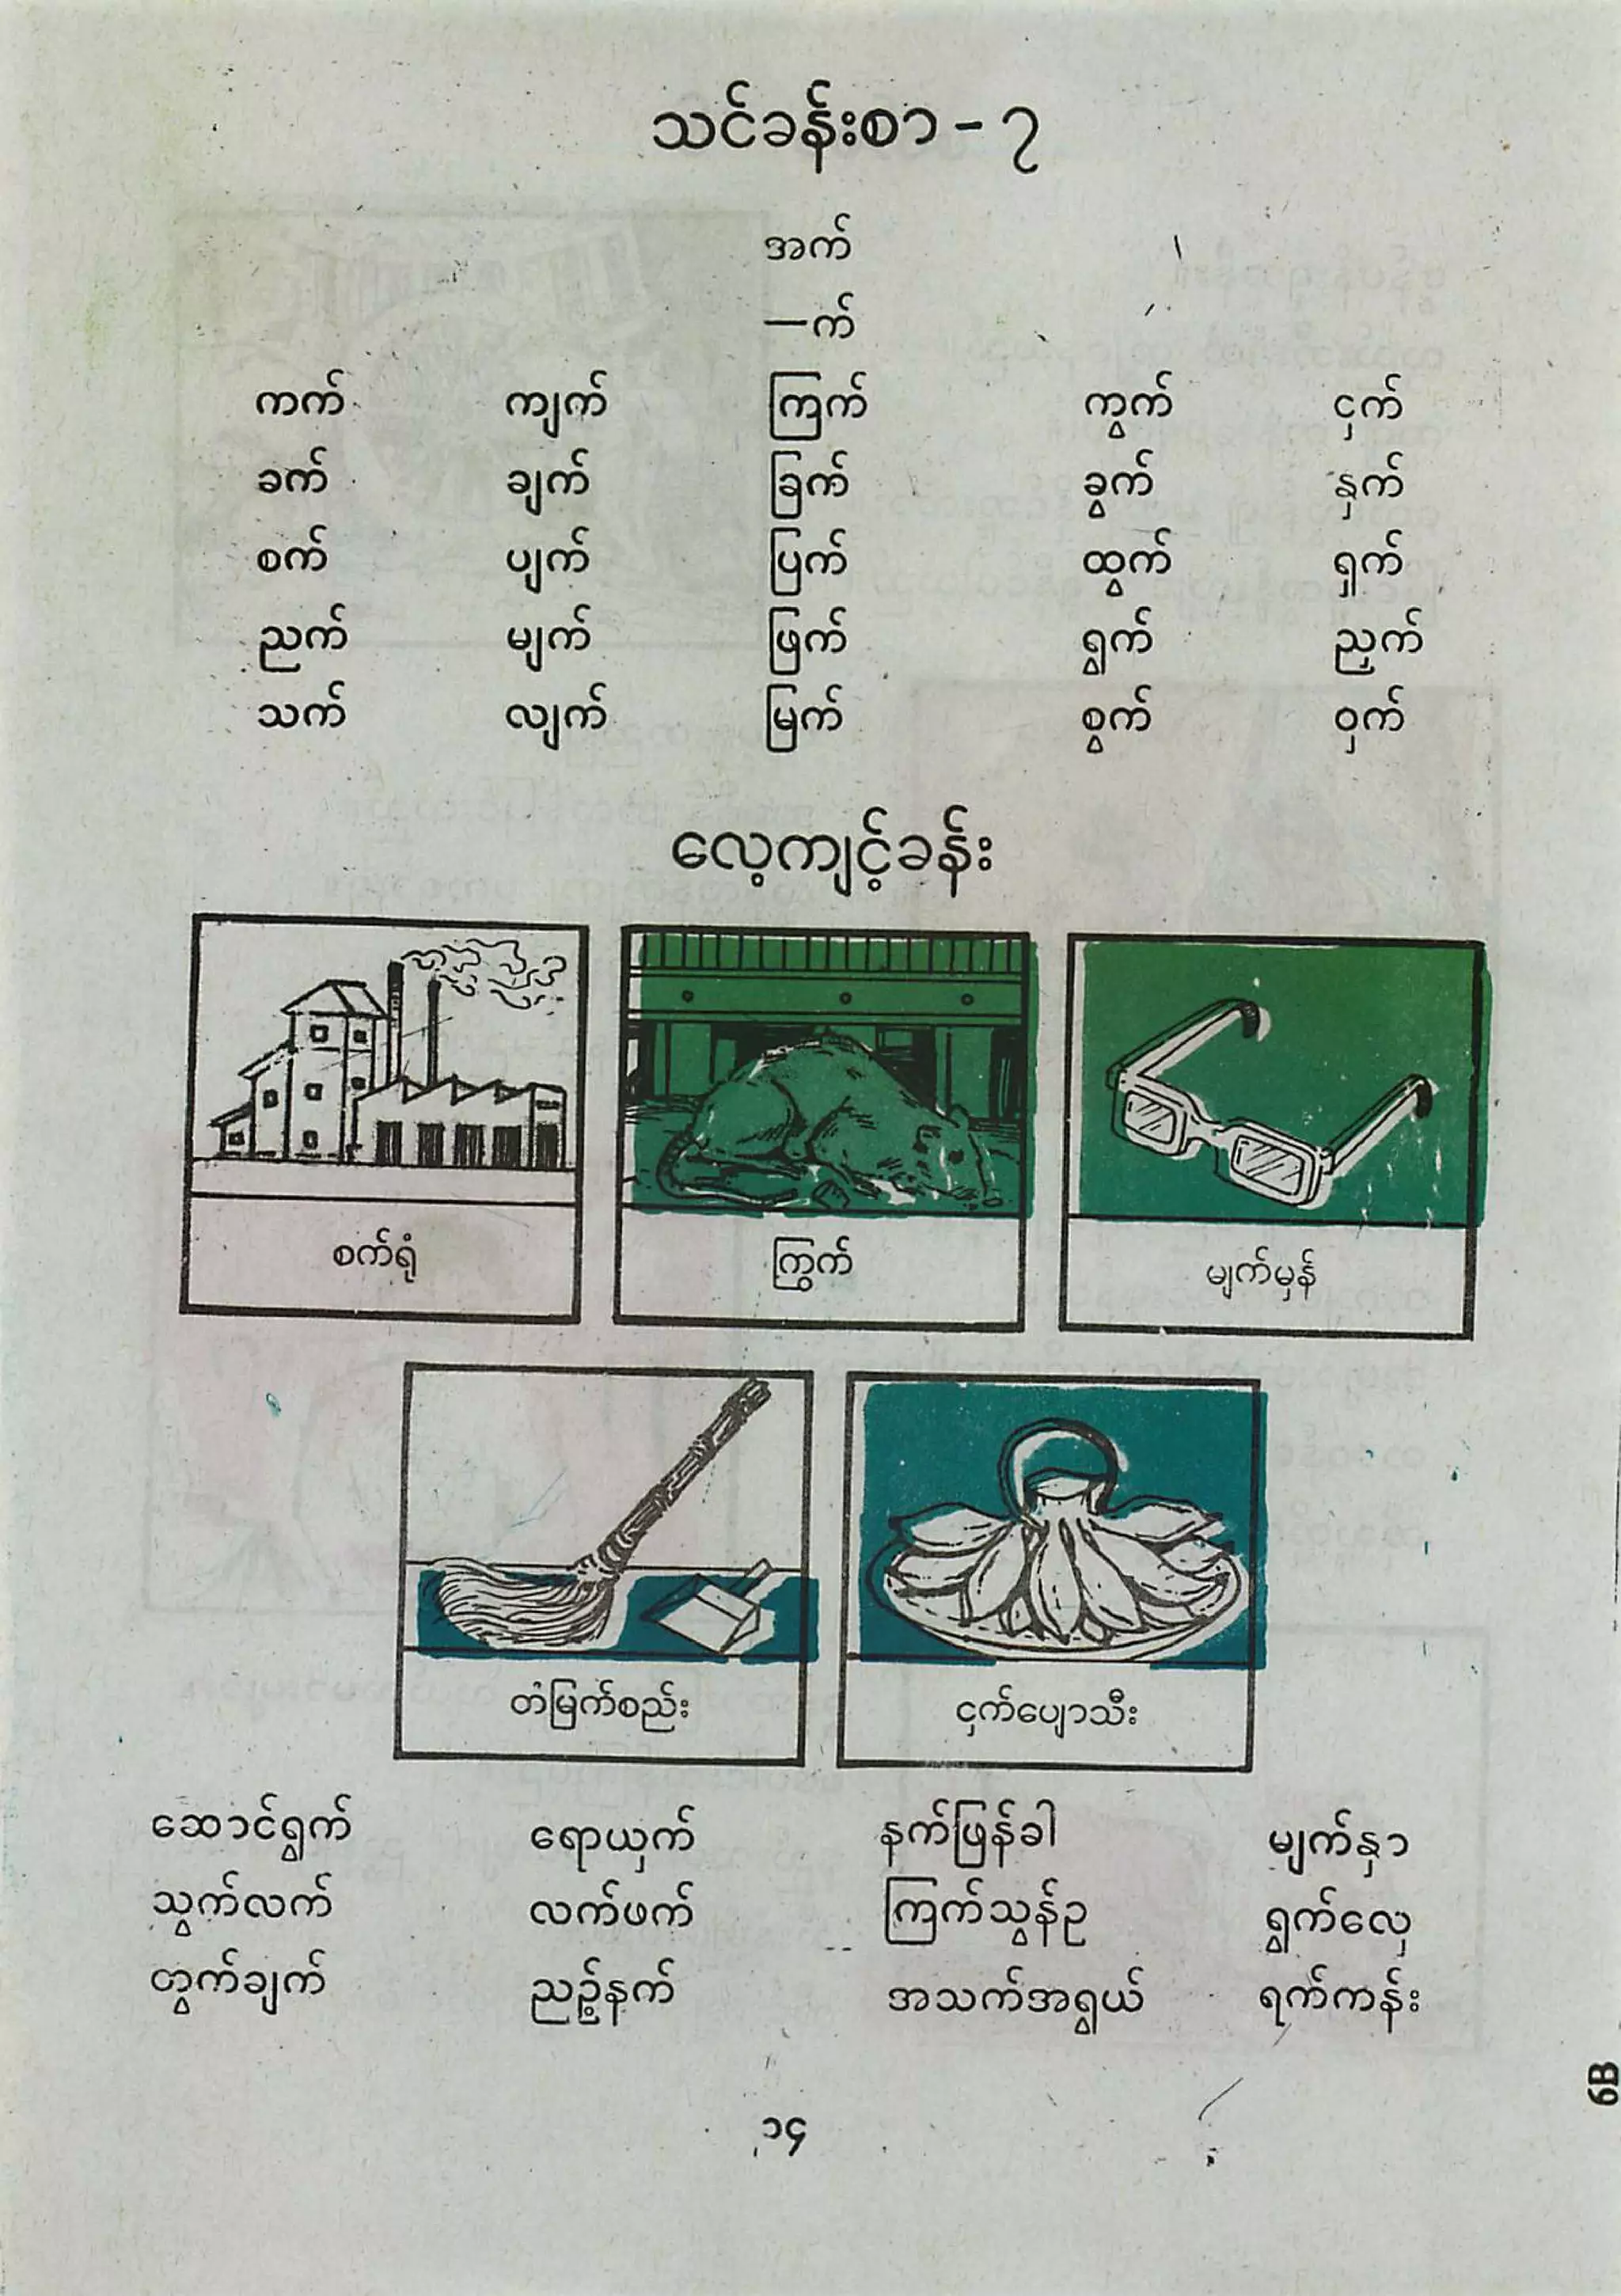 သင်ခန်းစာ - ၇
အက်
—က်
ကက် ကျက် ကြက် ကွက် ငှက်
ခက် ချက် ခြက် ခွက် နှက်
စက် ပျက် ပြက် ထွက် ရှက်
ညက် မျက် ဖြက် ရွက် ညှက်
သက် လျက် မြက် စွက် ဝှက်
လေ့ကျင့်ခန်း
စက်ရုံ ကြွက် မျက်မှန်
တံမြက်စည်း ငှက်ပျောသီး
ဆောင်ရွက် ရောယှက် နက်ဖြန်ခါ မျက်နှာ
သွက်လက် လက်ဖက် ကြက်သွန်ဥ ရွက်လှေ
တွက်ချက် ညဉ့်နက် အသက်အရွယ် ရက်ကန်း
၁၄
6B